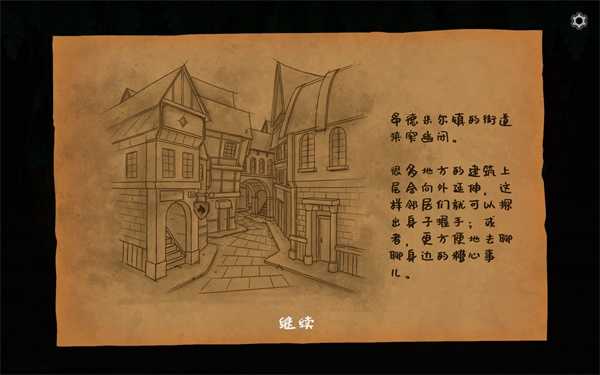 德尔镇的街道
狭窄幽闭。
很多地方的建筑上
层会向外延伸，这
样邻居们就可以探
出身子握手；或
者，更方便地去聊
聊身边的糟心事
儿。
继续